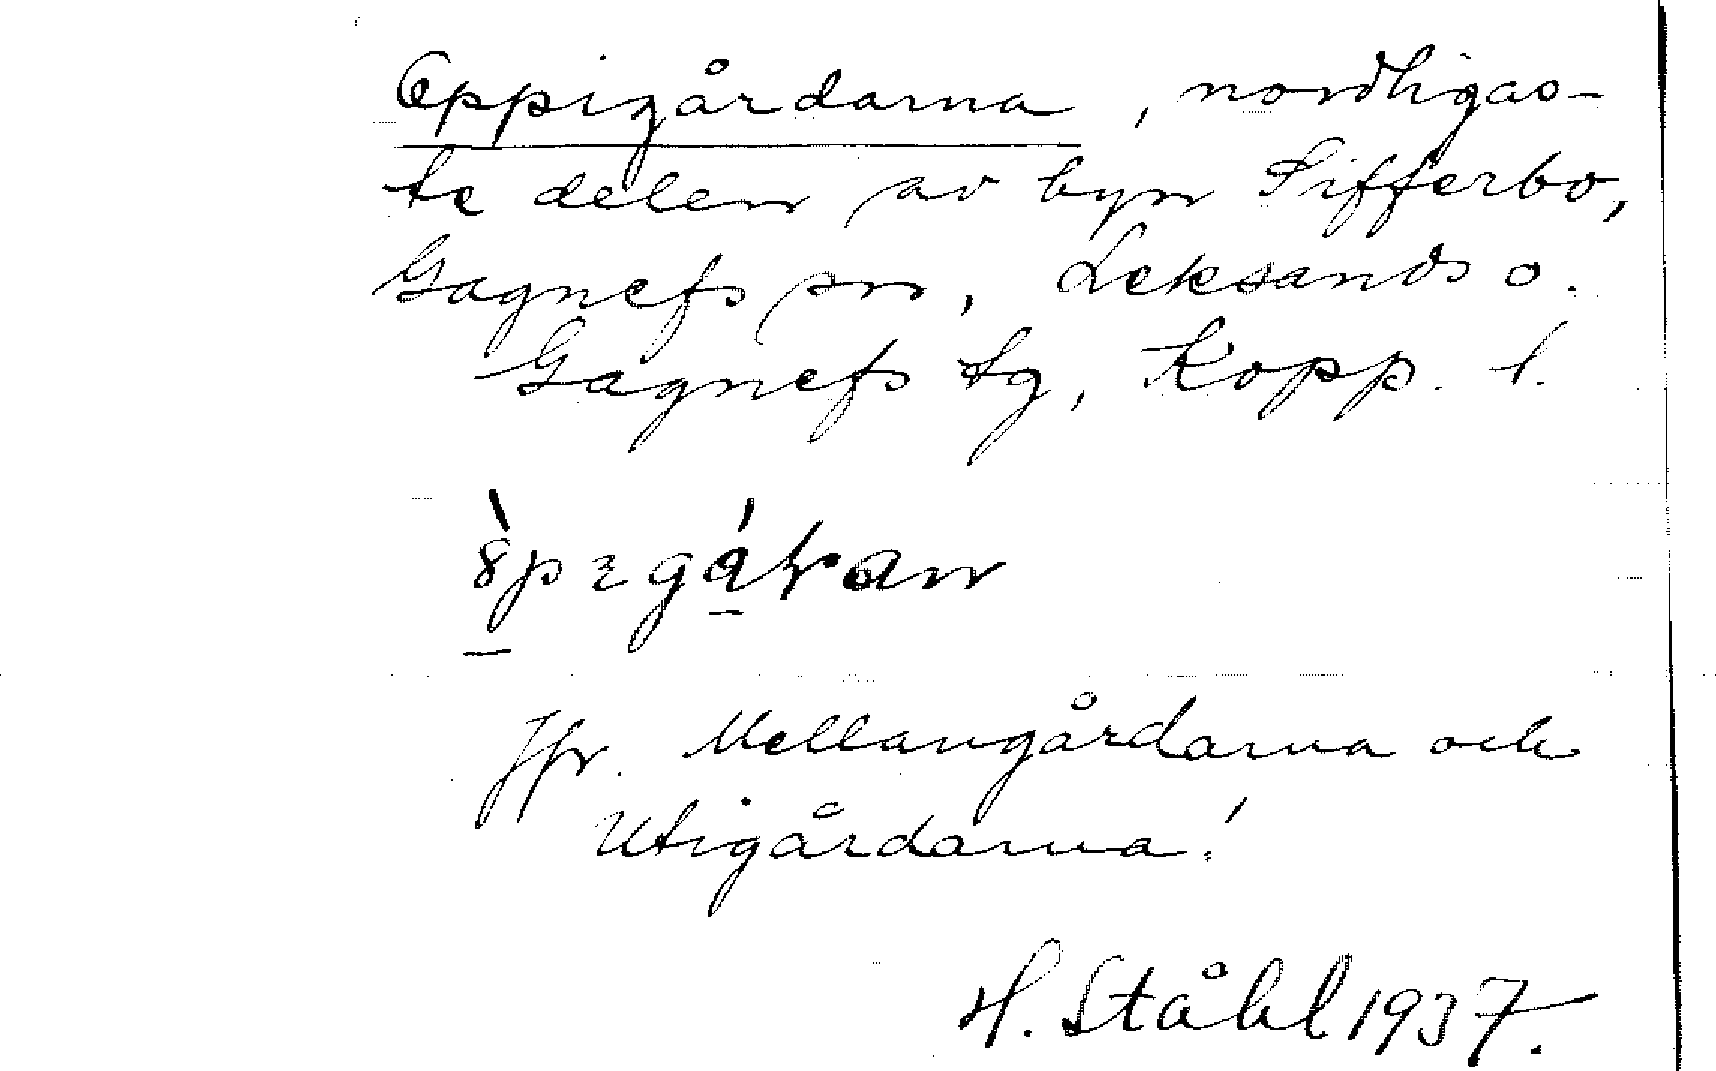 Oppigårdarna, nordligas-
te delen av byn Sifferbo,
Gagnefs sn, Leksands o.
Gagnefs tg, Kopp. l.
Jfr. Mellangårdarna och
Utigårdarna!
H. Ståhl 1937.